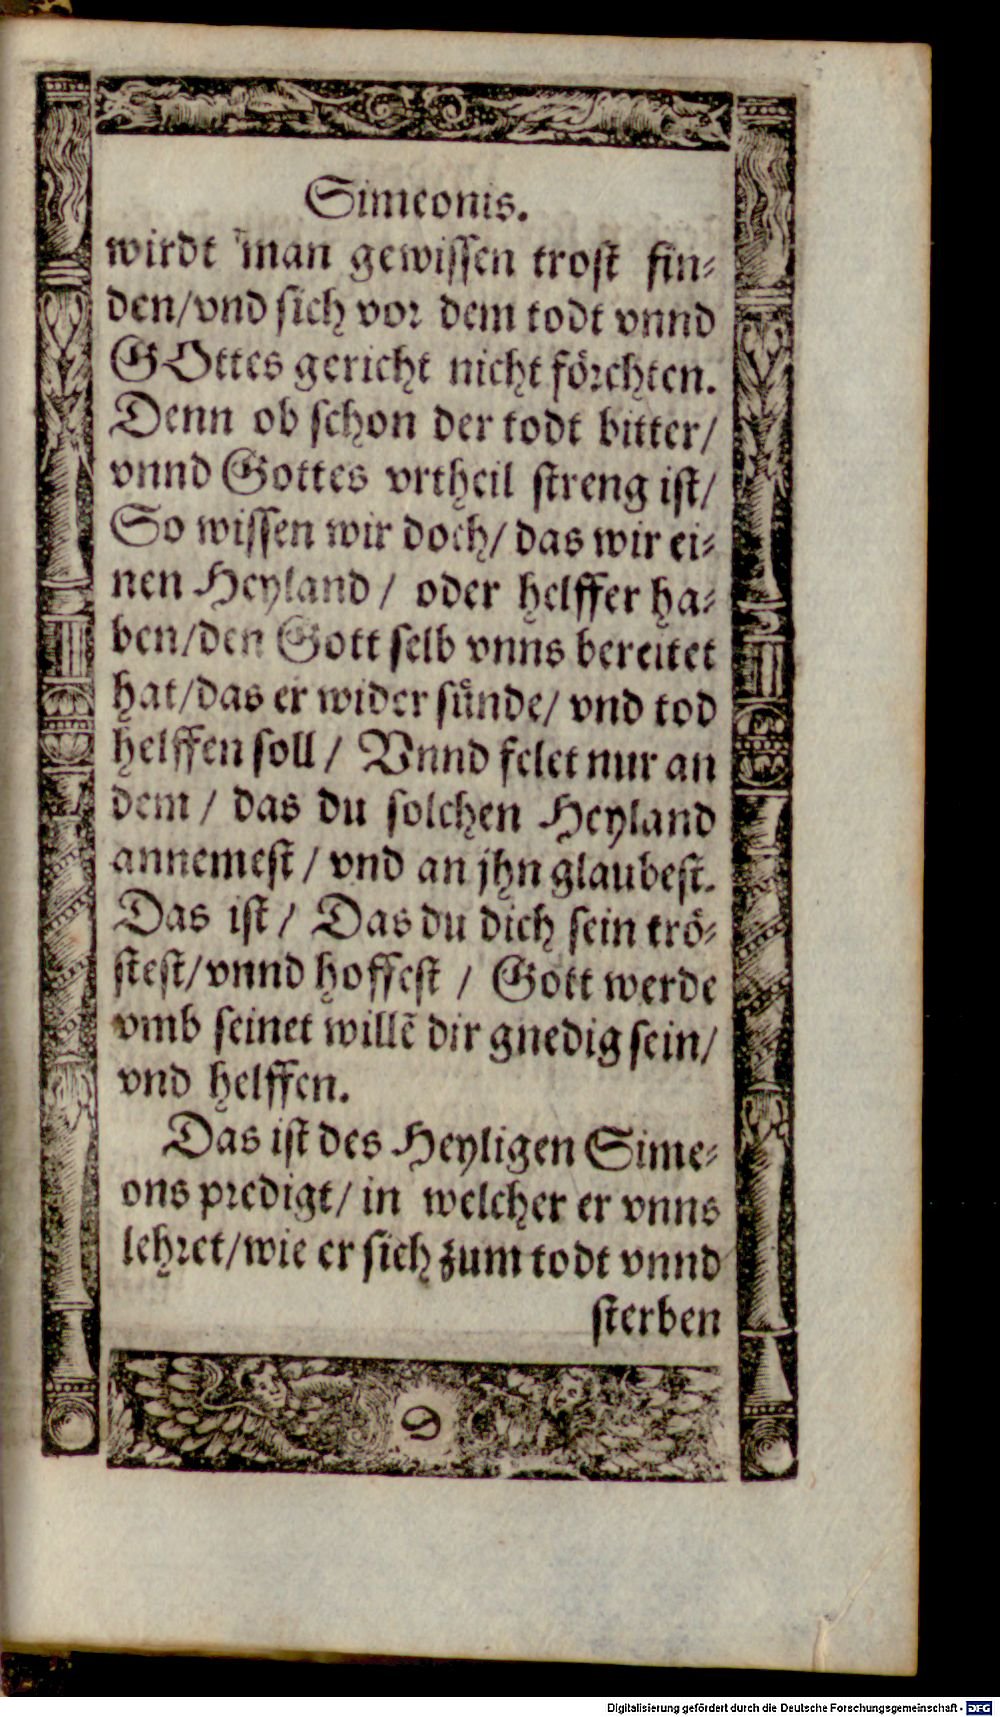 Simeonis.
wirdt man gewissen trost fin⸗
den/vnd sich vor dem todt vnnd
GOttes gericht nicht förchten.
Denn ob schon der todt bitter/
vnnd Gottes vrtheil streng ist/
So wissen wir doch/ das wir ei⸗
nen Heyland / oder helffer ha⸗
ben/den Gott selb vnns bereitet
hat/das er wider sünde/ vnd tod
helffen soll / Vnnd felet nur an
dem / das du solchen Heyland
annemest / vnd an jhn glaubest.
Das ist / Das du dich sein trö⸗
stest/vnnd hoffest / Gott werde
vmb seinet willē dir gnedig sein/
vnd helffen.
Das ist des Heyligen Sime⸗
ons predigt/ in welcher er vnns
lehret/wie er sich zum todt vnnd
sterben
Digitalisierung gefördert durch die Deutsche Forschungsgemeinschaft - DFG